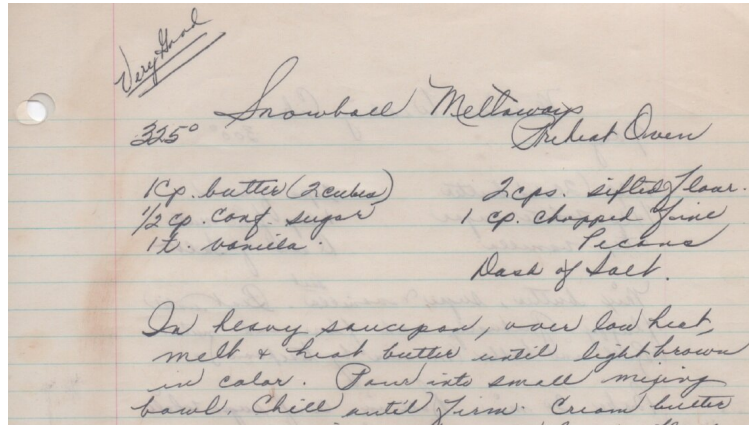 Very Good
Snowball Meltaways
325° Preheat Oven
1 Cp. butter (2 cubes) 2 cps. sifted flour.
1/2 cp. Conf. sugar 1 cp. chopped fine
1 t. vanilla. Pecans
Dash of Salt.
In heavy saucepan, over low heat,
melt & heat butter until light brown
in color. Pour into small mixing
bowl. Chill until firm. Cream butter